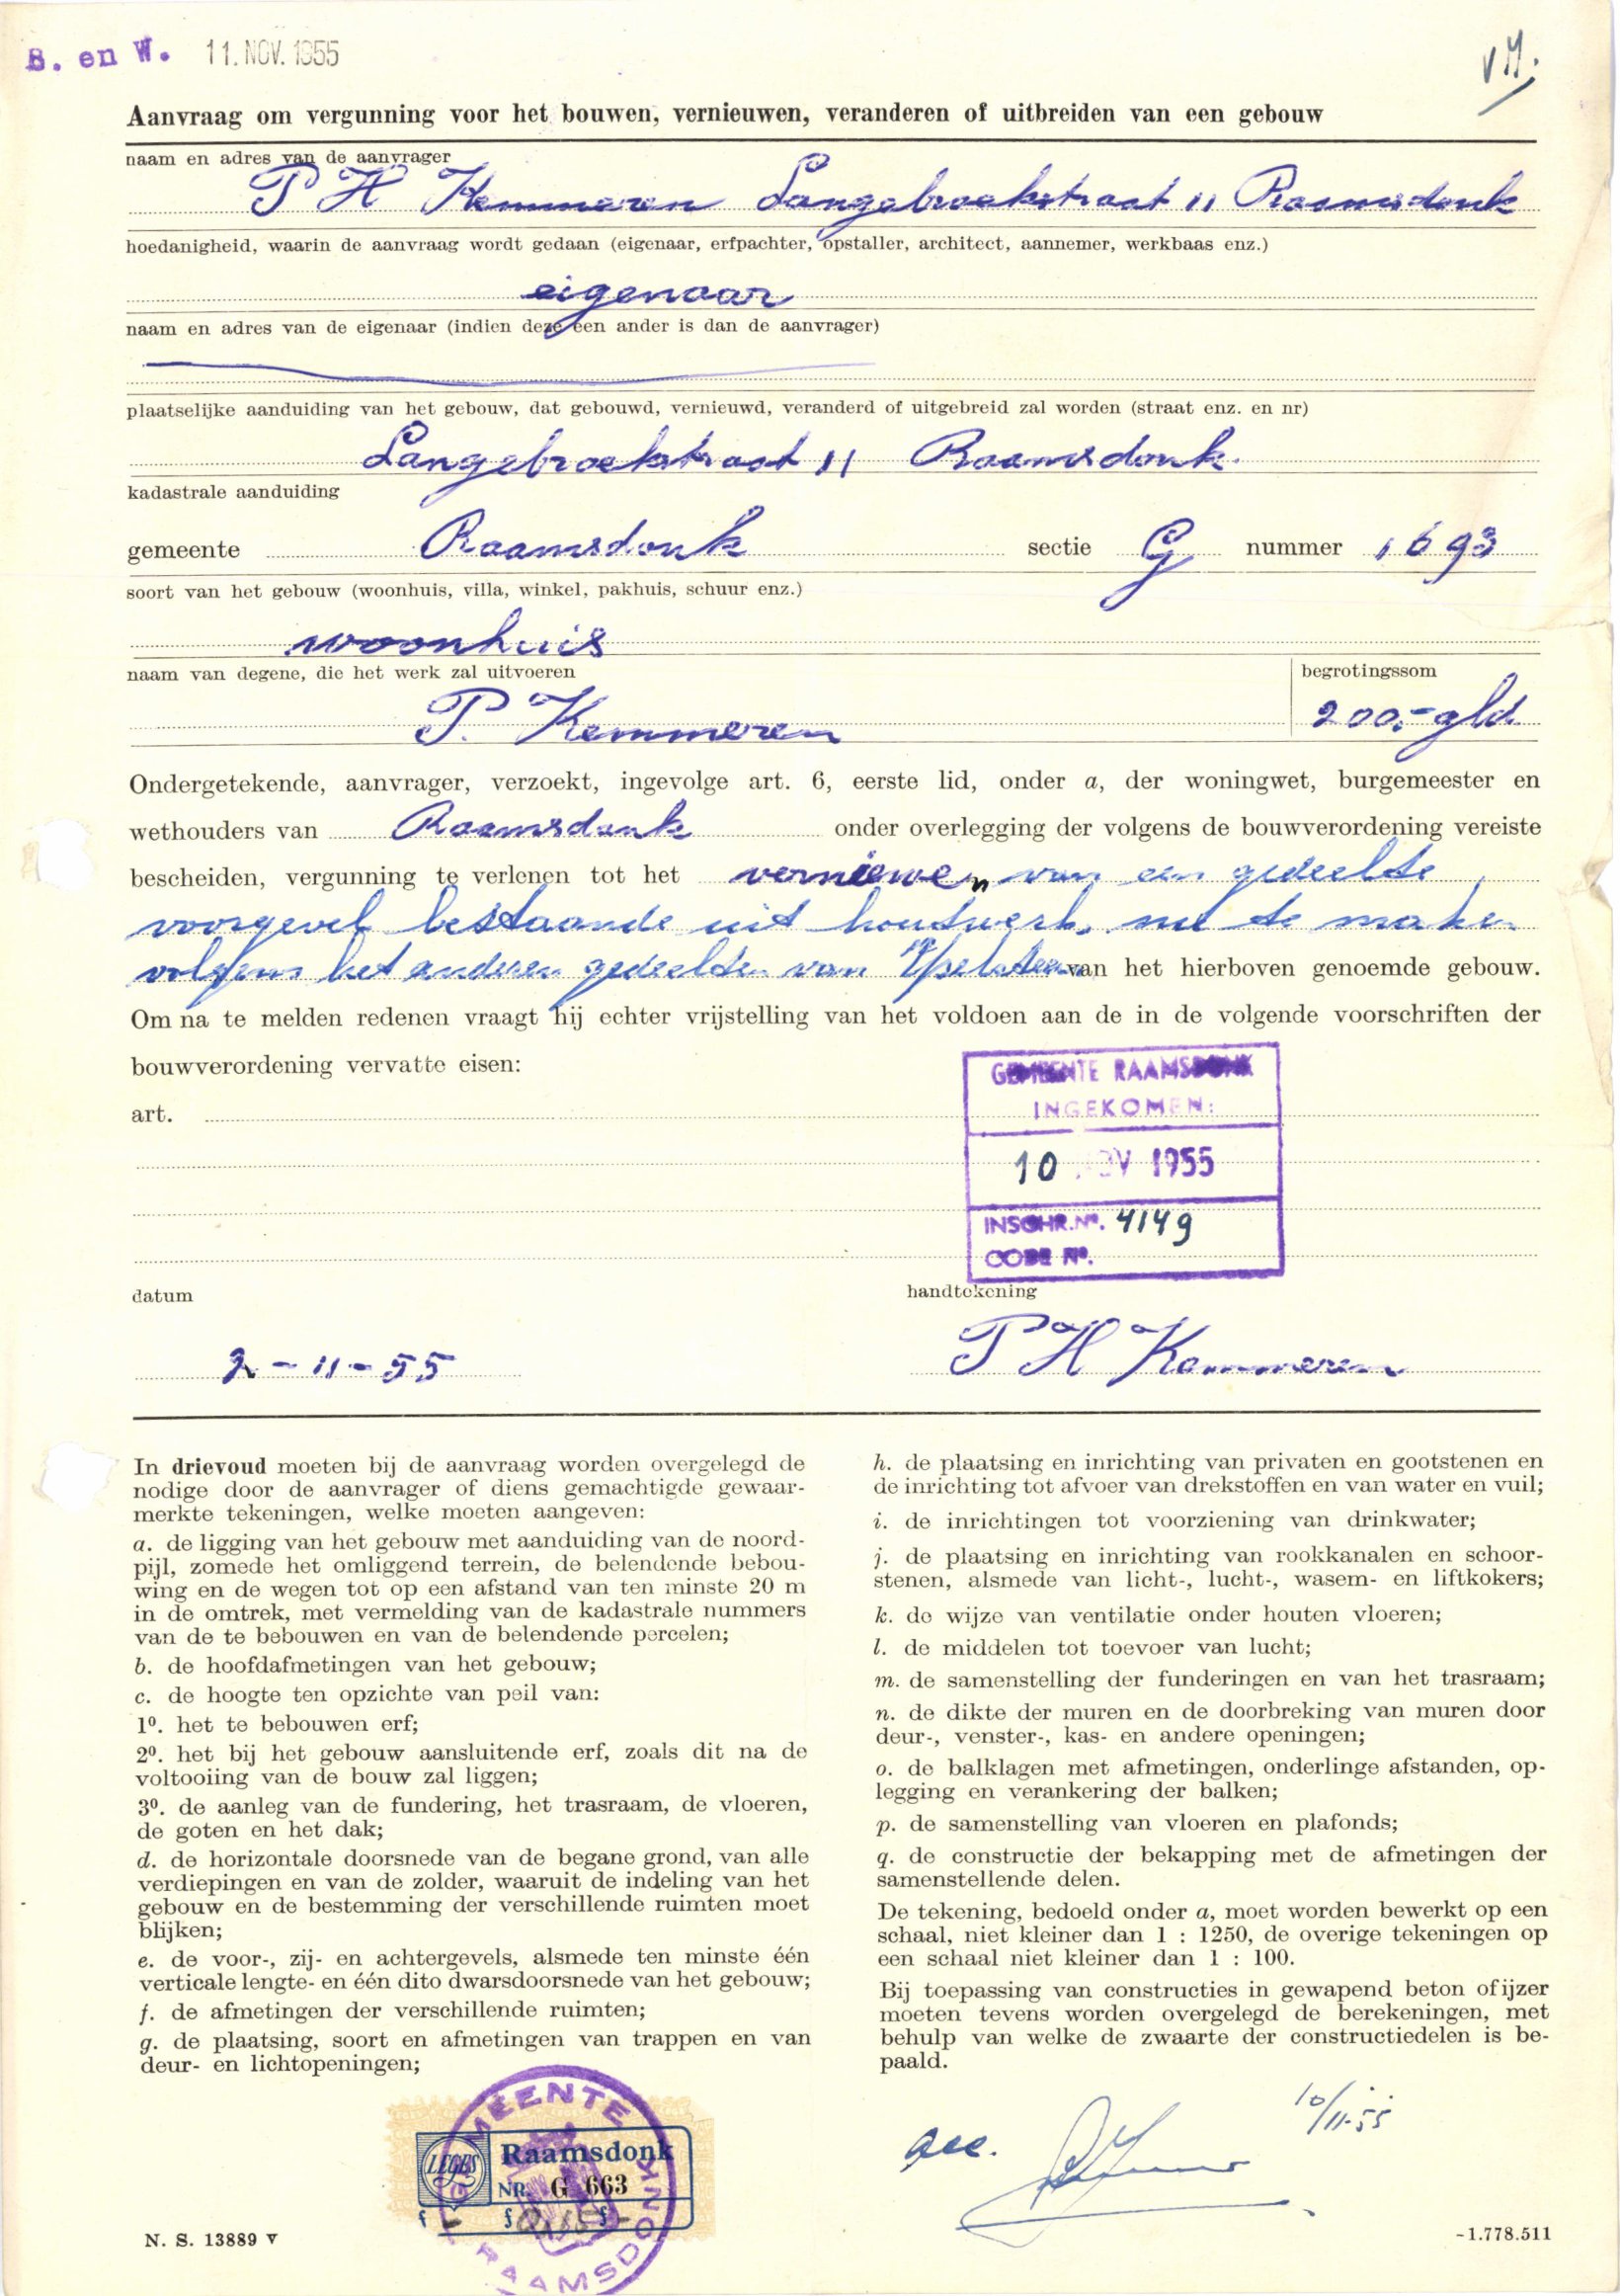 B. en W. 11. NOV. 1955
Aanvraag om vergunning voor het bouwen, vernieuwen, veranderen of uitbreiden van een gebouw
naam en adres van de aanvrager
P H Kemmeren Langebroekstraat 11 Raamsdonk
hoedanigheid, waarin de aanvraag wordt gedaan (eigenaar, erfpachter, opstaller, architect, aannemer, werkbaas enz.)
eigenaar
naam en adres van de eigenaar (indien deze een ander is dan de aanvrager)
plaatselijke aanduiding van het gebouw, dat gebouwd, vernieuwd, veranderd of uitgebreid zal worden (straat enz. en nr)
Langebroekstraat 11 Raamsdonk.
kadastrale aanduiding
gemeente Raamsdonk sectie G nummer 1693
soort van het gebouw (woonhuis, villa, winkel, pakhuis, schuur enz.)
woonhuis
naam van degene, die het werk zal uitvoeren
begrotingssom
P. Kemmeren 200,- gld.
Ondergetekende, aanvrager, verzoekt, ingevolge art. 6, eerste lid, onder a, der woningwet, burgemeester en
wethouders van Raamsdonk onder overlegging der volgens de bouwverordening vereiste
bescheiden, vergunning te verlenen tot het verniewen van een gedeelte
voorgevel bestaande uit houtwerk, te maken
volgens het anderen gedeelden van van het hierboven genoemde gebouw.
Om na te melden redenen vraagt hij echter vrijstelling van het voldoen aan de in de volgende voorschriften der
bouwverordening vervatte eisen:
art.
GEMEENTE RAAMSDONK
INGEKOMEN:
10 NOV 1955
INSCHR.No. 4149
CODE No.
datum
handtekening
2-11-55
P H Kemmeren
In drievoud moeten bij de aanvraag worden overgelegd de
nodige door de aanvrager of diens gemachtigde gewaar-
merkte tekeningen, welke moeten aangeven:
a. de ligging van het gebouw met aanduiding van de noord-
pijl, zomede het omliggend terrein, de belendende bebou-
wing en de wegen tot op een afstand van ten minste 20 m
in de omtrek, met vermelding van de kadastrale nummers
van de te bebouwen en van de belendende percelen;
b. de hoofdafmetingen van het gebouw;
c. de hoogte ten opzichte van peil van:
1º. het te bebouwen erf;
2º. het bij het gebouw aansluitende erf, zoals dit na de
voltooiing van de bouw zal liggen;
3º. de aanleg van de fundering, het trasraam, de vloeren,
de goten en het dak;
d. de horizontale doorsnede van de begane grond, van alle
verdiepingen en van de zolder, waaruit de indeling van het
gebouw en de bestemming der verschillende ruimten moet
blijken;
e. de voor-, zij- en achtergevels, alsmede ten minste één
verticale lengte- en één dito dwarsdoorsnede van het gebouw;
f. de afmetingen der verschillende ruimten;
g. de plaatsing, soort en afmetingen van trappen en van
deur- en lichtopeningen;
h. de plaatsing en inrichting van privaten en gootstenen en
de inrichting tot afvoer van drekstoffen en van water en vuil;
i. de inrichtingen tot voorziening van drinkwater;
j. de plaatsing en inrichting van rookkanalen en schoor-
stenen, alsmede van licht-, lucht-, wasem- en liftkokers;
k. de wijze van ventilatie onder houten vloeren;
l. de middelen tot toevoer van lucht;
m. de samenstelling der funderingen en van het trasraam;
n. de dikte der muren en de doorbreking van muren door
deur-, venster-, kas- en andere openingen;
o. de balklagen met afmetingen, onderlinge afstanden, op-
legging en verankering der balken;
p. de samenstelling van vloeren en plafonds;
q. de constructie der bekapping met de afmetingen der
samenstellende delen.
De tekening, bedoeld onder a, moet worden bewerkt op een
schaal, niet kleiner dan 1 : 1250, de overige tekeningen op
een schaal niet kleiner dan 1 : 100.
Bij toepassing van constructies in gewapend beton of ijzer
moeten tevens worden overgelegd de berekeningen, met
behulp van welke de zwaarte der constructiedelen is be-
paald.
acc. 10/11-55
GEMEENTE RAAMSDONK
LEGES
Raamsdonk
NR. G 663
N. S. 13889 V
-1.778.511